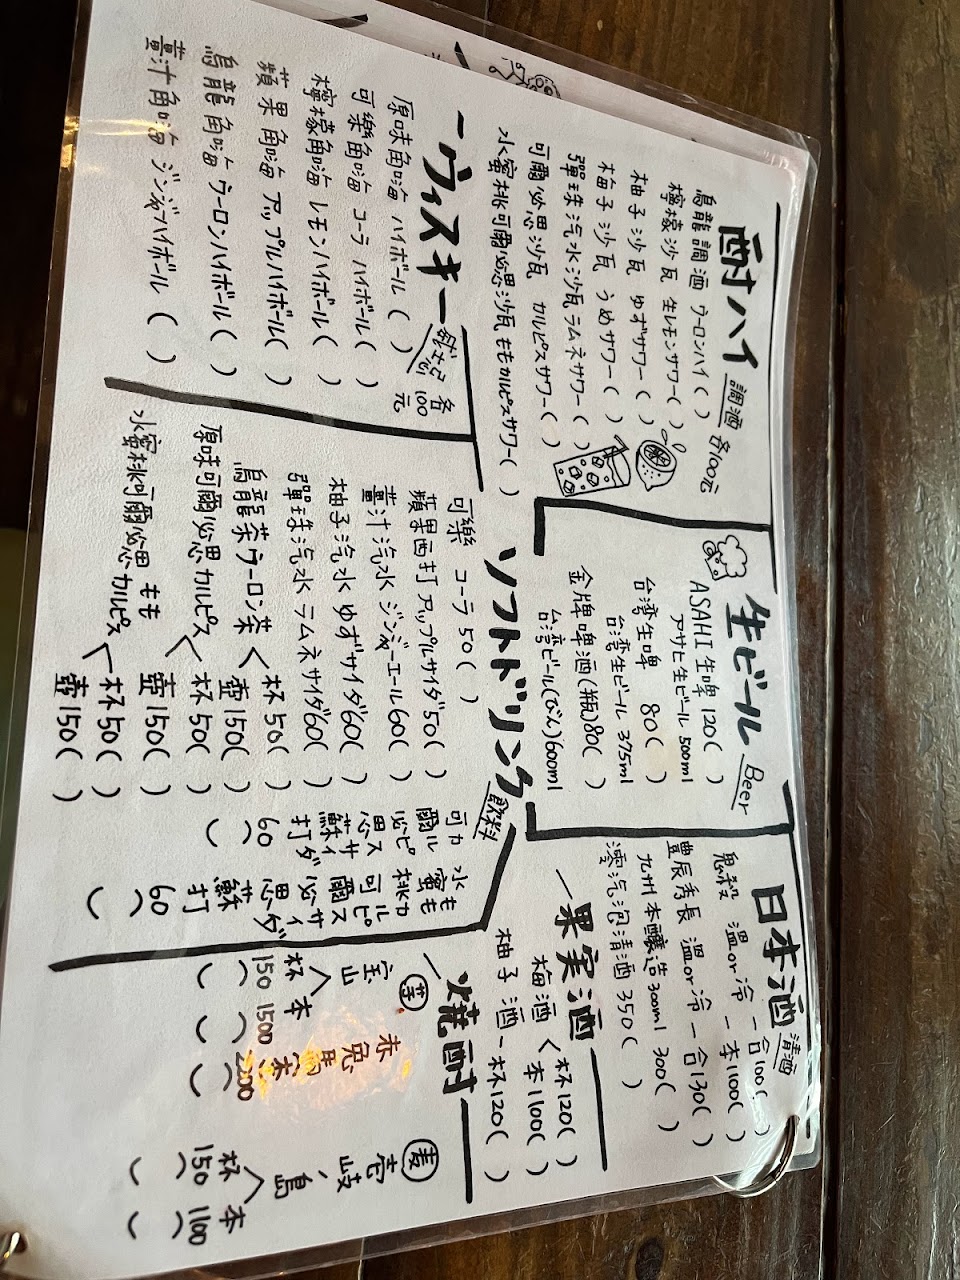 酎ハイ 調酒 各100元
烏龍調酒 ウーロンハイ( )
檸檬沙瓦 生レモンサワー( )
柚子沙瓦 ゆずサワー( )
梅子沙瓦 うめサワー( )
彈珠汽水沙瓦 ラムネサワー( )
可爾必思沙瓦 カルピスサワー( )
水蜜桃可爾必思沙瓦 ももカルピスサワー( )
生ビール Beer
ASAHI 生啤 120( )
アサヒ生ビール 500ml
台湾生啤 80( )
台湾生ビール 375ml
金牌啤酒(瓶)80( )
台湾ビール(びん)600ml
日本酒 清酒
鬼殺 溫or冷 一合100( )
一本1100( )
豊辰秀長 溫or冷 一合130( )
九州本釀造 300ml 300( )
澪汽泡清酒 350( )
ウィスキー 威士忌 各100元
原味角嗨 ハイボール( )
可樂角嗨 コーラハイボール( )
檸檬角嗨 レモンハイボール( )
蘋果角嗨 アップルハイボール( )
烏龍角嗨 ウーロンハイボール( )
薑汁角嗨 ジンジャーハイボール( )
ソフトドリンク 飲料
可樂 コーラ 50( )
蘋果西打 アップルサイダ50( )
薑汁汽水 ジンジャーエール60( )
柚子汽水 ゆずサイダ60( )
彈珠汽水 ラムネサイダ60( )
烏龍茶 ウーロン茶 杯50( )
壺150( )
原味可爾必思 カルピス 杯50( )
壺150( )
水蜜桃可爾必思 ももカルピス 杯50( )
壺150( )
可爾必思蘇打 カルピスサイダ 60( )
水蜜桃可爾必思蘇打 ももカルピスサイダ 60( )
果実酒
梅酒 杯120( )
本1100( )
柚子酒 一杯120( )
焼酎
芋
宝山 杯150( )
本1500( )
赤兎馬 200( )
麦
壱岐ノ島 杯150( )
本1100( )